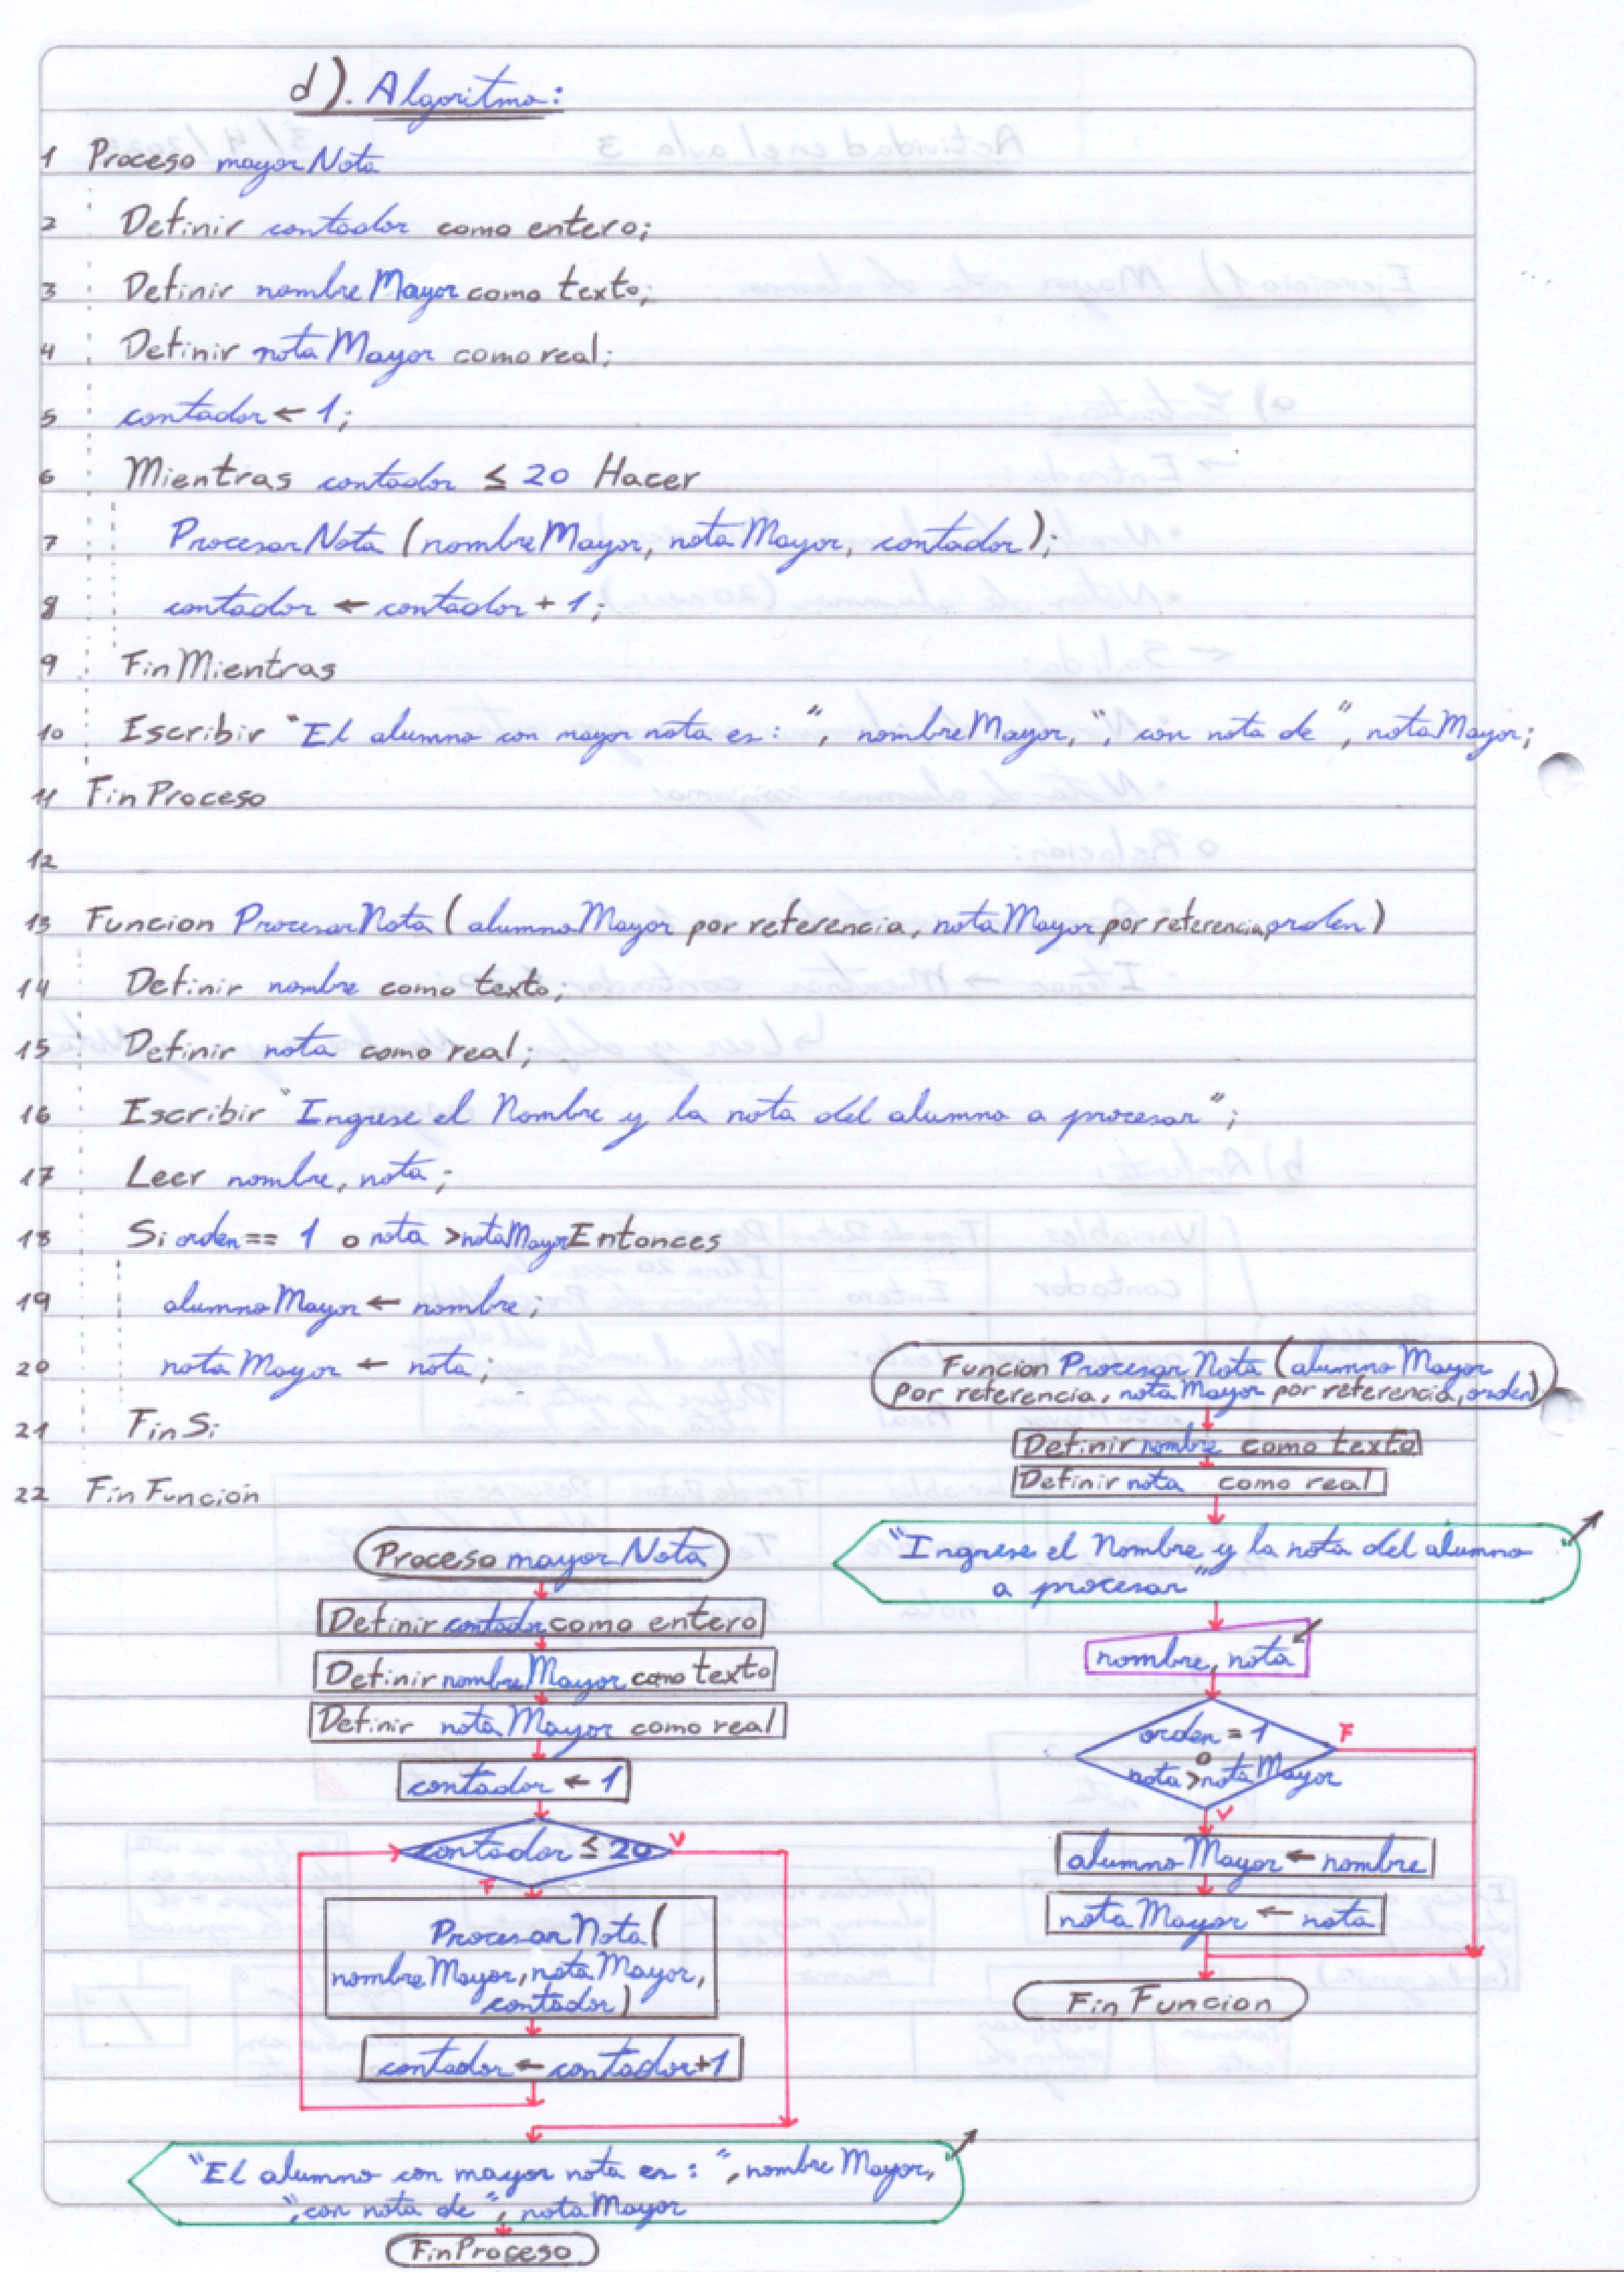 d). Algoritmo:
1 Proceso mayorNota
2 Definir contador como entero;
3 Definir nombreMayor como texto;
4 Definir notaMayor como real;
5 contador ← 1;
6 Mientras contador ≤ 20 Hacer
7 ProcesarNota (nombreMayor, notaMayor, contador);
8 contador ← contador + 1;
9 FinMientras
10 Escribir "El alumno con mayor nota es: ", nombreMayor, ", con nota de ", notaMayor;
11 FinProceso
12
13 Funcion ProcesarNota (alumnoMayor por referencia, notaMayor por referencia, orden)
14 Definir nombre como texto;
15 Definir nota como real;
16 Escribir "Ingrese el Nombre y la nota del alumno a procesar";
17 Leer nombre, nota;
18 Si orden == 1 o nota > notaMayor Entonces
19 alumnoMayor ← nombre;
20 notaMayor ← nota;
21 FinSi
22 FinFunción
Proceso mayorNota
Definir contador como entero
Definir nombreMayor como texto
Definir notaMayor como real
contador ← 1
contador ≤ 20
V
F
ProcesarNota(
nombreMayor, notaMayor,
contador)
contador ← contador+1
"El alumno con mayor nota es: ", nombreMayor,
", con nota de ", notaMayor
FinProceso
Funcion ProcesarNota (alumnoMayor
por referencia, notaMayor por referencia, orden)
Definir nombre como texto
Definir nota como real
"Ingrese el Nombre y la nota del alumno
a procesar"
nombre, nota
orden = 1
o
nota > notaMayor
F
V
alumnoMayor ← nombre
notaMayor ← nota
FinFuncion